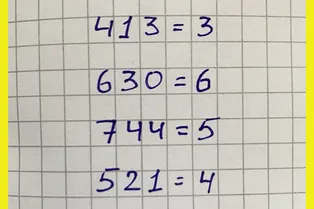 413 = 3
630 = 6
744 = 5
521 = 4